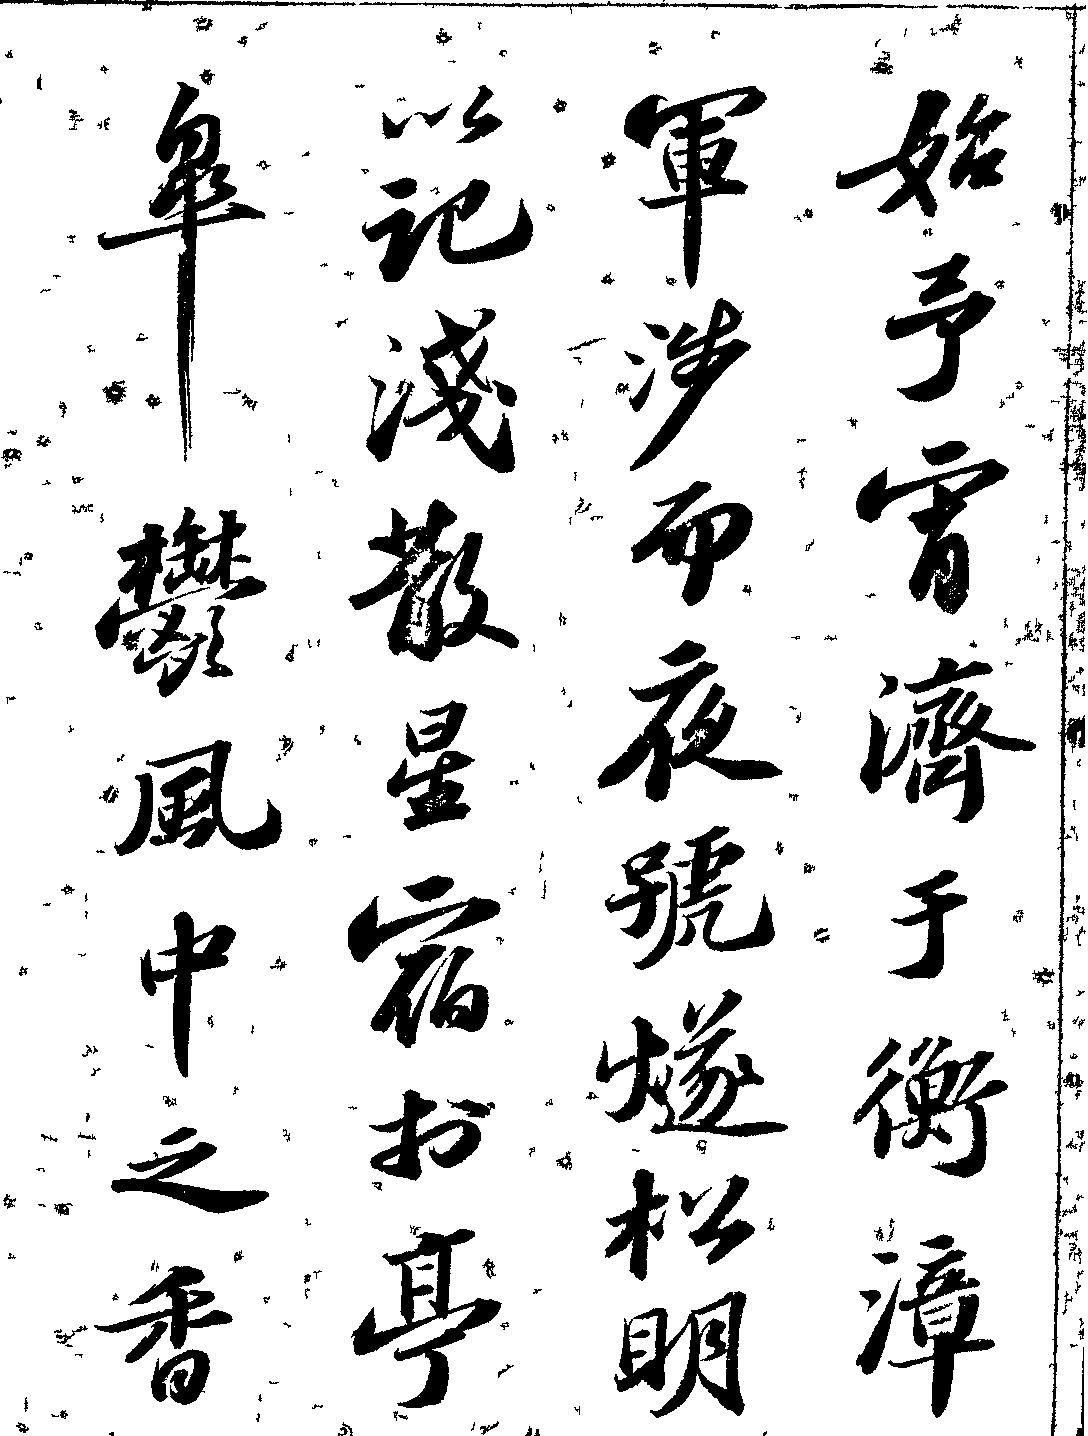 始予宵濟于衡漳
軍涉而夜號燧松明
以記淺散星宿於亭
皋鬱風中之香